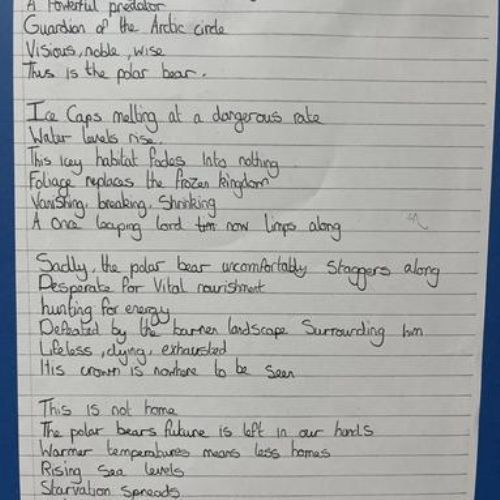 A Powerful predator
Guardian of the Arctic circle
Visious, noble, wise
Thus is the polar bear.
Ice Caps melting at a dangerous rate
Water levels rise.
This icey habitat fades into nothing
Foliage replaces the frozen kingdom
Vanishing, breaking, Shrinking
A once leaping lord now limps along
Sadly, the polar bear uncomfortably staggers along
Desperate for vital nourishment
hunting for energy
Defeated by the barren landscape Surrounding him
Lifeless, dying, exhausted
His crown is nowhere to be seen
This is not home
The polar bears future is left in our hands
Warmer temperatures means less homes
Rising sea levels
Starvation spreads